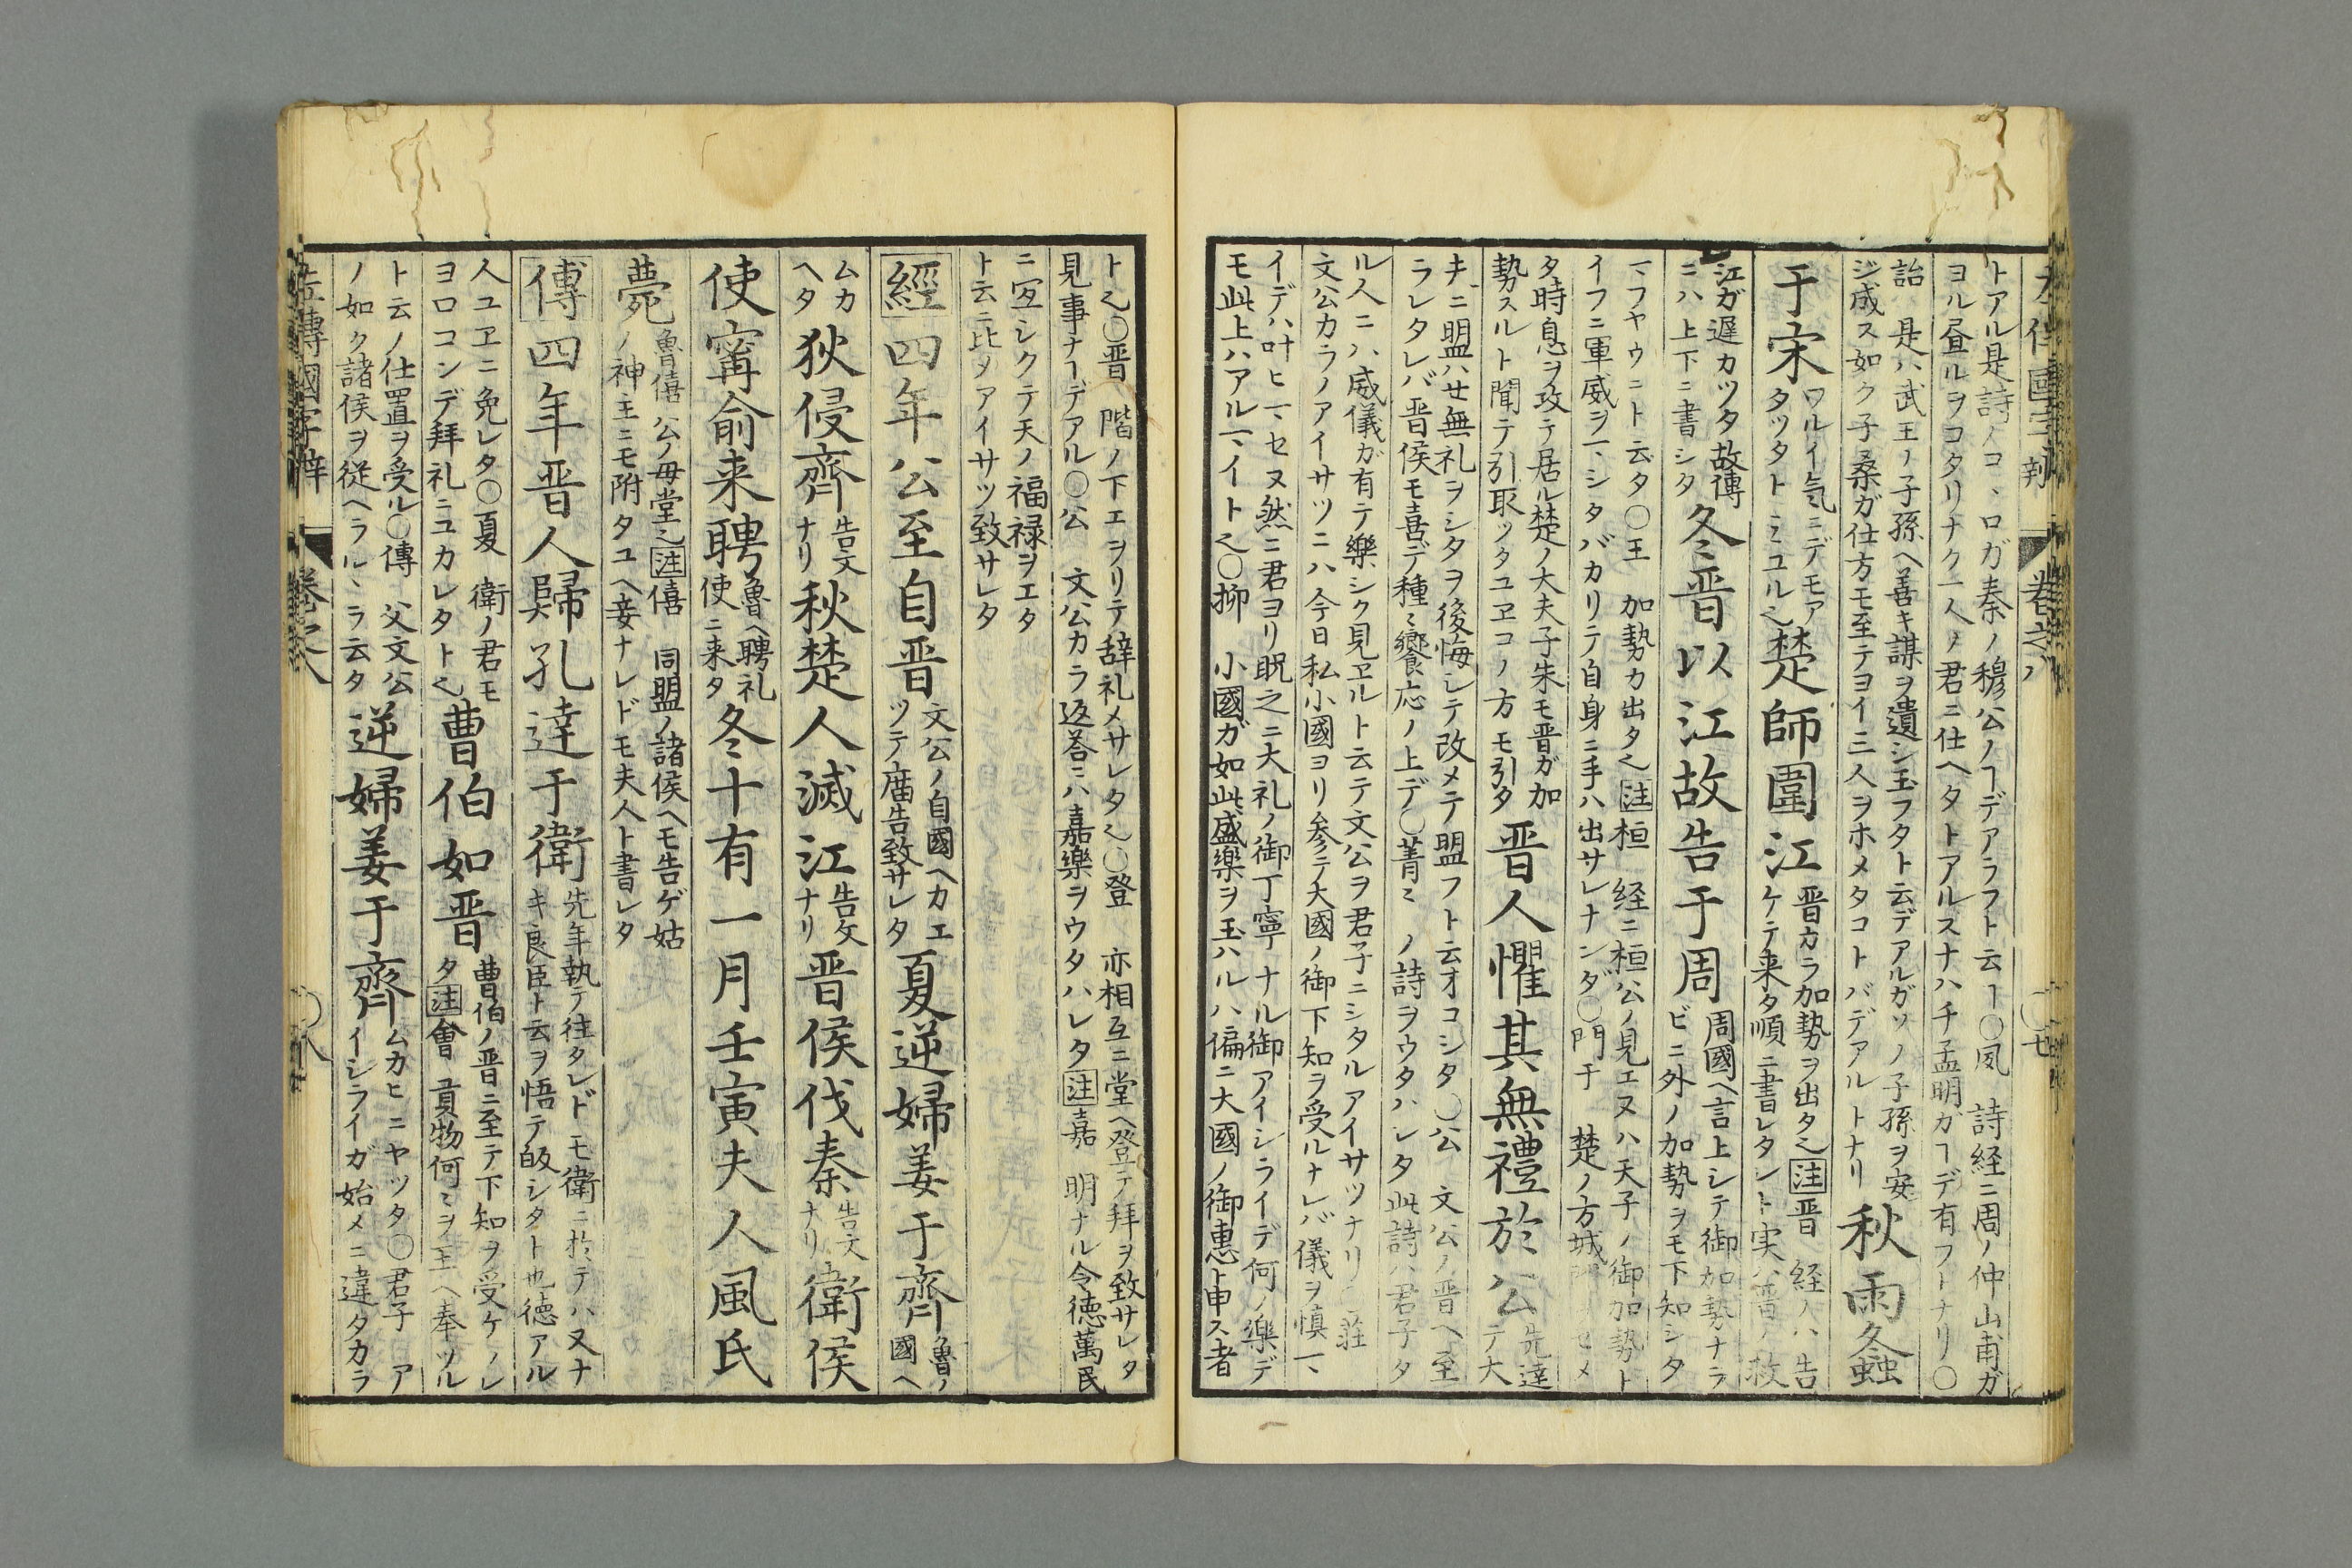 左傳國字辯 卷之八
トアル是詩ノコヽロガ秦ノ穆公ノヿデアラフト云ヿ〇夙 詩経ニ周ノ仲山甫ガ
ヨル昼ルヲコタリナク一人ノ君ニ仕ヘタトアルスナハチ孟明ガヿデ有フトナリ〇
詒 是ハ武王ノ子孫ヘ善キ謀ヲ遺シ玉フタト云デアルガソノ子孫ヲ安
ジ成ス如ク子桑ガ仕方モ至テヨイ三人ヲホメタコトバデアルトナリ 秋雨螽
于宋 ワルイ気ニデモア
タツタトミユル也 楚師圍江 晋カラ加勢ヲ出タ也 注 晋 経ノハ告
ケテ来タ順ニ書レタント実ハ晋ノ救
江ガ遅カツタ故傳
ニハ上下ニ書シタ 冬晋以江故告于周 周國ヘ言上シテ御加勢ナラ
ビニ外ノ加勢ヲモ下知シタ
フヤウニト云タ〇王 加勢カ出タ也 注 桓 経ニ桓公ノ見エヌハ天子ノ御加勢ト
イフニ軍威ヲヽシタバカリテ自身ニ手ハ出サレナンダ〇門于 楚ノ方城
タ時息ヲ攻テ居ル楚ノ大夫子朱モ晋ガ加
勢スルト聞テ引取ッタユヱコノ方モ引タ 晋人懼其無禮於公 先達
テ大
夫ニ明ハせ無礼ヲシタヲ後悔シテ改メテ盟フト云オコシタ〇公 文公ノ晋ヘ至
ラレタレバ晋侯モ喜デ種ミ饗応ノ上デ〇菁ミ ノ詩ヲウタハシタ此詩ハ君子タ
ル人ニハ威儀ガ有テ樂シク見ヱルト云テ文公ヲ君子ニシタルアイサツナリ〇莊
文公カラノアイサツニハ今日私小國ヨリ参テ大國ノ御下知ヲ受ルナレバ儀ヲ慎ヽ
イデハ叶ヒヽセヌ然ニ君ヨリ貺之ニ大礼ノ御丁寧ナル御アイシライデ何ノ樂デ
モ此上ハアルヽイト也〇抑 小國ガ如此盛樂ヲ玉ハルハ偏ニ大國ノ御惠ト申ス者
ト也〇晋 階ノ下エヲリテ辞礼メサレタ也〇登 亦相互ニ堂ヘ登テ拜ヲ致サレタ
見事ナヿデアル〇公 文公カラ返荅ニハ嘉樂ヲウタハレタ 注 嘉 明ナル令徳萬民
ニ宜シクテ天ノ福禄ヲエタ
ト云ニ比ヲアイサツ致サレタ
經四年公至自晋 文公ノ自國ヘカエ
ツテ廣告致サレタ 夏逆婦姜于齊 魯ノ
國ヘ
ムカ
ヘタ 狄侵齊 告文
ナリ 秋楚人滅江 告文
ナリ 晋侯伐秦 告文
ナリ 衛侯
使甯俞来聘 魯ヘ聘礼
使ニ来タ 冬十有一月壬寅夫人風氏
薨 魯僖公ノ母堂也 注 僖 同盟ノ諸侯ヘモ告ゲ姑
ノ神主ニモ附タユヘ妾ナレドモ夫人ト書レタ
傳四年晋人歸孔達于衛 先年執テ往タレドモ衛ニ於テハ又ナ
キ良臣ト云ヲ悟テ皈シタト也徳アル
人ユヱニ免レタ〇夏 衛ノ君モ
ヨロコンデ拜礼ニユカレタト也 曹伯如晋 曹伯ノ晋ニ至テ下知ヲ受ケノレ
タ 注 會 貢物何ミヲ王ヘ奉ツル
ト云ノ仕置ヲ受ル〇傳 父文公
ノ如ク諸侯ヲ従ヘラルヽラ云タ 逆婦姜于齊 ムカヒニヤツタ〇君子 ア
イシライガ始メニ違タカラ
左傳國字辯 卷之八